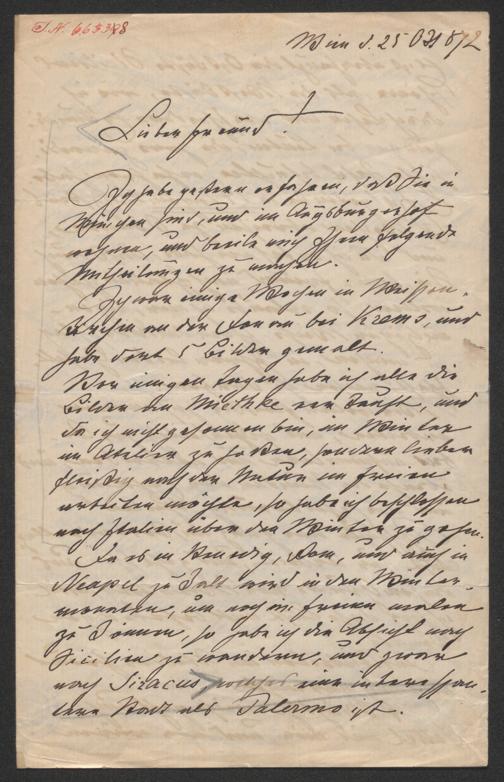 I.N. 66338
Wien d. 25 Okt 872
Lieber Freund!
Ich habe gestern erfahren, daß Sie in
München sind, und im Augsburgerhof
wohnen, und beeile mich Ihnen folgende
Mittheilungen zu machen.
Ich war einige Wochen in Weissen-
kirchen an der Donau bei Krems, und
habe dort 5 Bilder gemalt.
Vor einigen Tagen habe ich alle die
Bilder an Miethke verkauft, und
da ich nicht gesonnen bin, im Winter
im Atelier zu hocken, sondern lieber
fleißig nach der Natur im freien
arbeiten möchte, so habe ich beschlossen
nach Italien über den Winter zu gehen.
Da es in Venedig, Rom, und auch in
Neapel zu kalt wird in den Winter-
monaten, um noch im freien malen
zu können, so habe ich die Absicht nach
Sicilien zu wandern, und zwar
nach Siracus, welches eine interessan-
tere Stadt als Palermo ist.